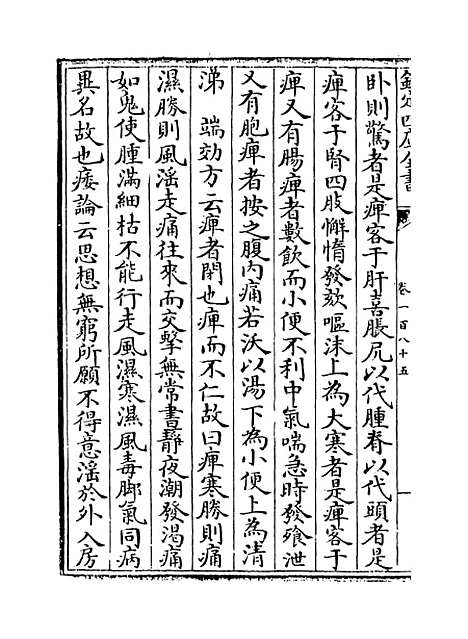 欽定四庫全書
卷一百八十五
卧則驚者是痺客于肝喜脹尻以代腫脊以代頭者是
痺客于腎四肢懈惰發欬嘔沫上為大寒者是痺客于
痺又有腸痺者數飲而小便不利中氣喘急時發飱泄
又有胞痺者按之腹内痛若沃以湯下為小便上為清
涕　端効方云痺者閉也痺而不仁故曰痺寒勝則痛
濕勝則風滛走痛往來而交擊無常晝靜夜潮發渴痛
如鬼使腫滿細枯不能行走風濕寒濕風毒脚氣同病
異名故也痿論云思想無窮所願不得意滛於外入房